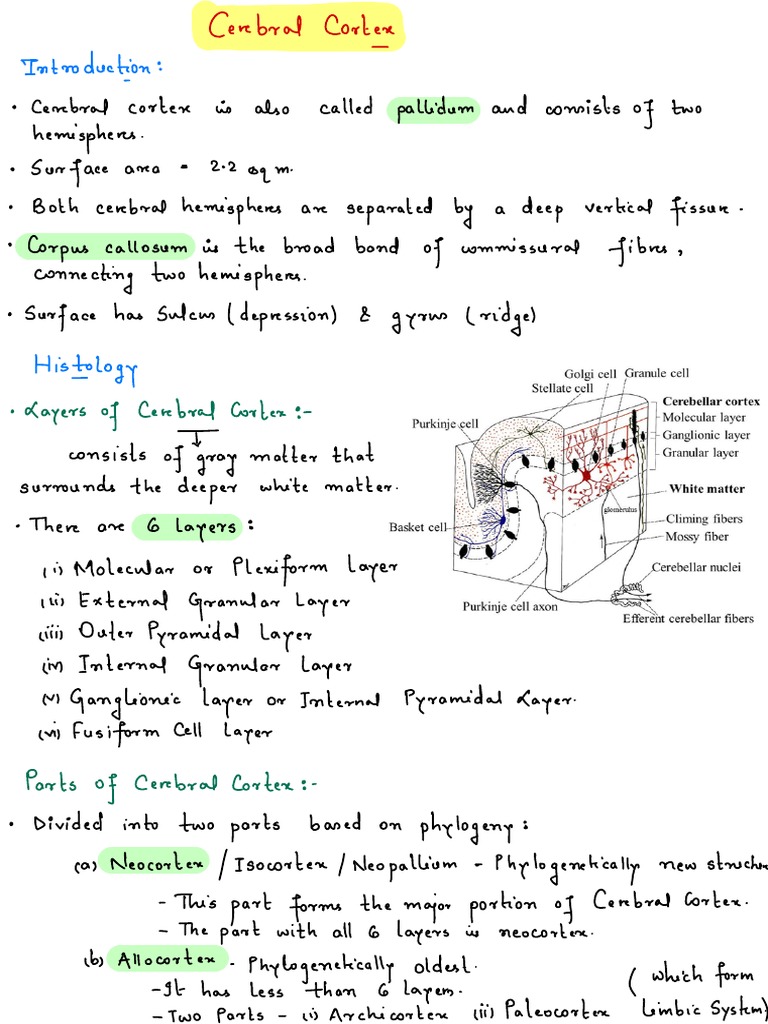 Cerebral Cortex
Introduction:
• Cerebral cortex is also called pallidum and consists of two
hemispheres.
• Surface area = 2.2 sq m.
• Both cerebral hemispheres are separated by a deep vertical fissure.
• Corpus callosum is the broad band of commissural fibres,
connecting two hemispheres.
• Surface has Sulcus (depression) & gyrus (ridge)
Histology
• Layers of Cerebral Cortex:-
consists of gray matter that
surrounds the deeper white matter.
• There are 6 layers:
(i) Molecular or Plexiform Layer
(ii) External Granular Layer
(iii) Outer Pyramidal Layer
(iv) Internal Granular Layer
(v) Ganglionic Layer or Internal Pyramidal Layer.
(vi) Fusiform Cell Layer
Golgi cell
Granule cell
Stellate cell
Cerebellar cortex
Purkinje cell
Molecular layer
Ganglionic layer
Granular layer
White matter
glomerulus
Basket cell
Climing fibers
Mossy fiber
Cerebellar nuclei
Purkinje cell axon
Efferent cerebellar fibers
Parts of Cerebral Cortex:-
• Divided into two parts based on phylogeny:
(a) Neocortex / Isocortex / Neopallium - Phylogenetically new structure
- This part forms the major portion of Cerebral Cortex.
- The part with all 6 layers is neocortex.
(b) Allocortex - Phylogenetically oldest.
- It has less than 6 layers.
- Two Parts - (i) Archicortex (ii) Paleocortex
(which form
Limbic System)